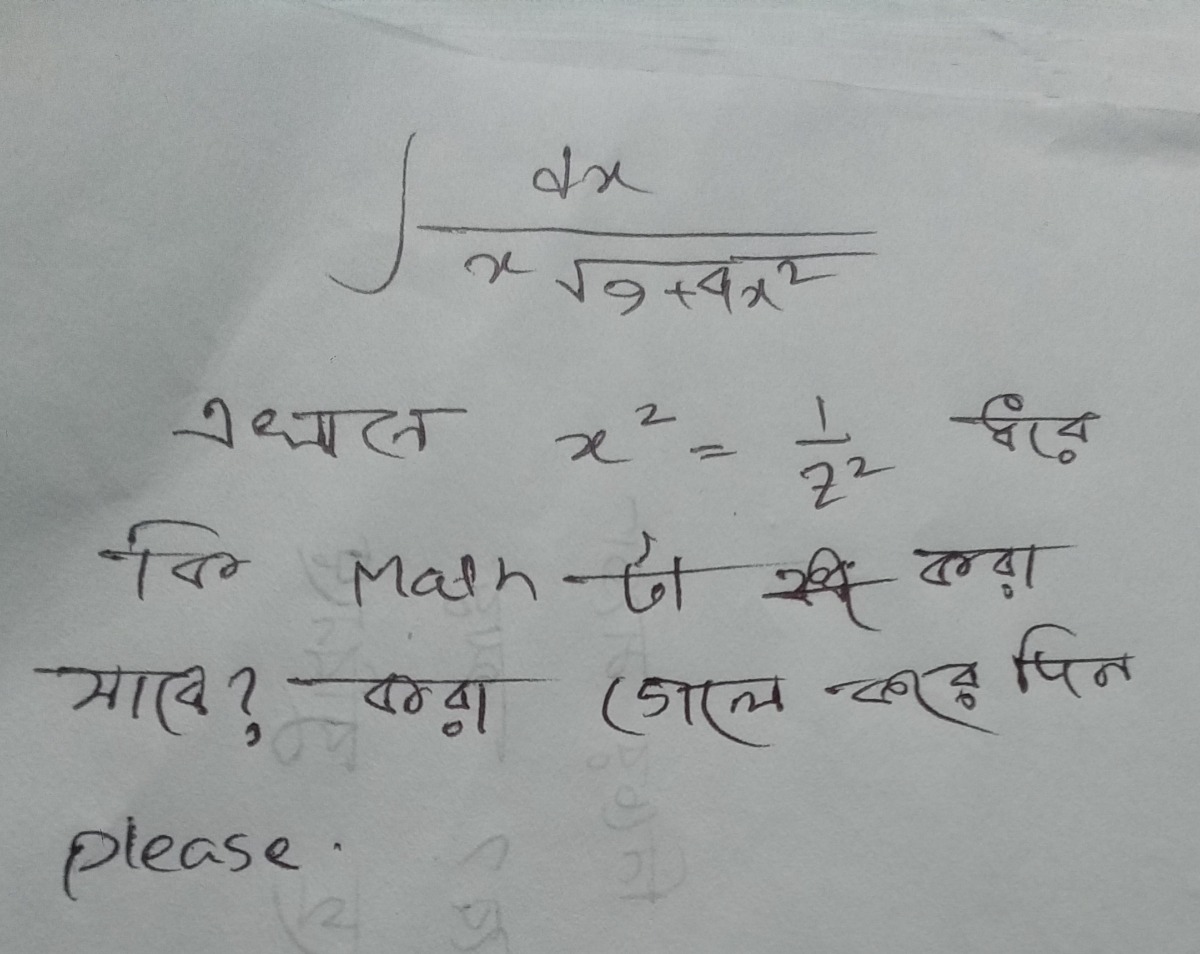 ∫ dx / x√9+4x²
এখানে x² = 1/z² ধরে
কি Math টা করা
যাবে? করা গেলে করে দিন
please.